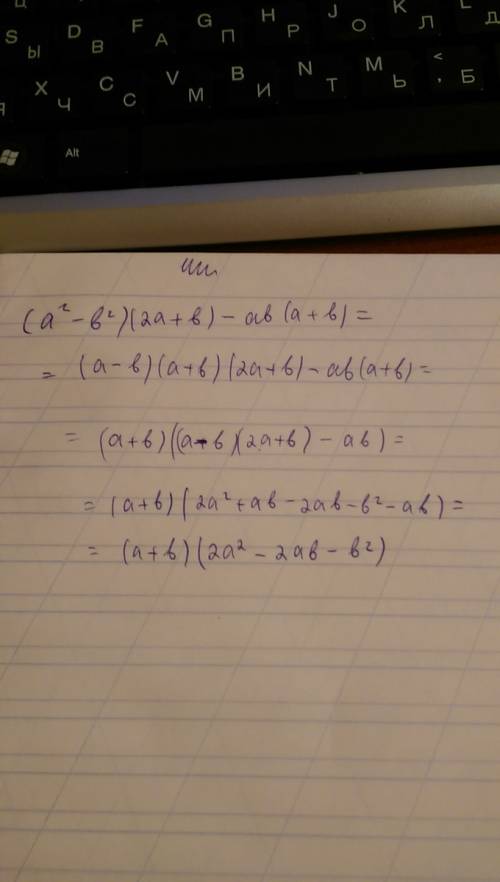 S Ы D В F А G П H Р J О K Л L Д
Я X Ч C С V М B И N Т M Ь < , Б
Alt
(a² - b²)(2a + b) - ab(a + b) =
= (a - b)(a + b)(2a + b) - ab(a + b) =
= (a + b)((a - b)(2a + b) - ab) =
= (a + b)(2a² + ab - 2ab - b² - ab) =
= (a + b)(2a² - 2ab - b²)